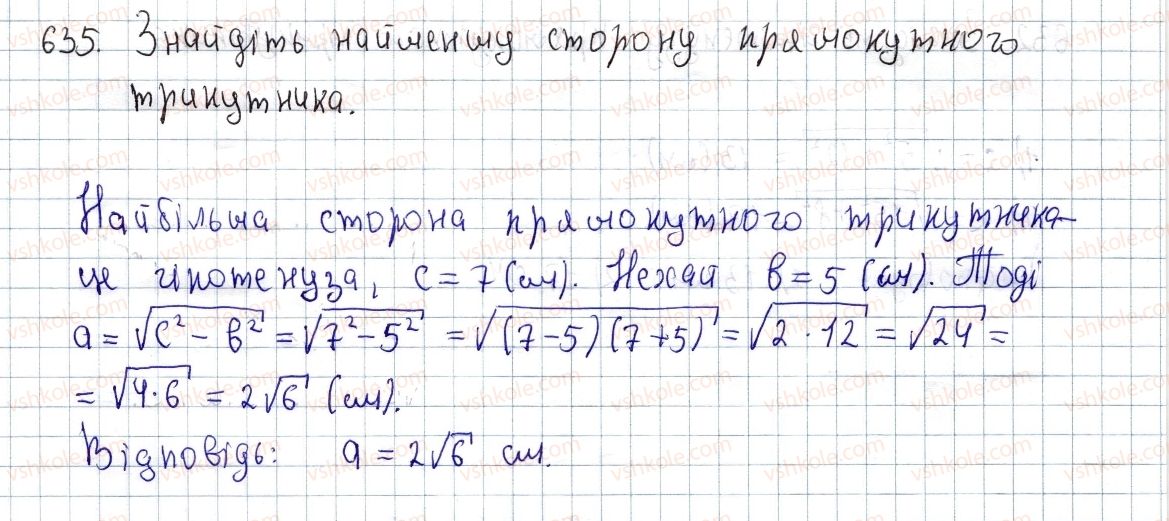 635. Знайдіть найменшу сторону прямокутного
трикутника.
Найбільша сторона прямокутного трикутника-
це гіпотенуза, c = 7 (см). Нехай b = 5 (см). Тоді
a = √(c² - b²) = √(7² - 5²) = √((7-5)(7+5)) = √(2·12) = √24 =
= √(4·6) = 2√6 (см).
Відповідь: a = 2√6 см.